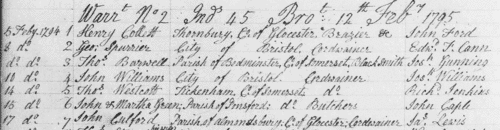 Warrt No 2 Ind 45 Brot 12th Feby 1795
5 Feby 1794 1 Henry Collett Thornbury, Co of Glocester Brazier &c John Ford
8 do 2 Geo Spurrier City of Bristol Cordwainer Edwd T. Cann
do do 3 Thos Barwell Parish of Bedminster, C. of Somerset, Black Smith Jos Gunning
10 do 4 John Williams City of Bristol Cordwainer Jos Williams
14 do 5 Thos Westcott Tickenham, C. of Somerset do Richd Jenkins
16 do 6 John & Martha Green, Parish of do Butchers John Caple
17 do 7 John Parish of Almondsbury, C. of Glocester, Cordwainer Jas Lewis